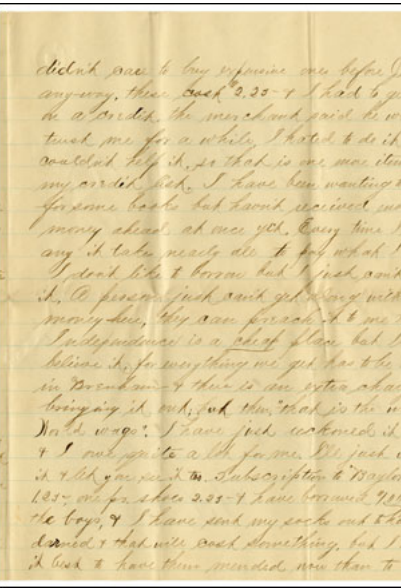 didn't care to buy expensive ones before
any-way. these cost $2.25 & I had to
on a credit, the merchant said he
trust me for a while, I hated to do it
couldn't help it, so that is one more item
my credit list. I have been wanting
for some books but havn't received
money ahead at once yet. Every time I
any it takes nearly all to pay what I
I don't like to borrow but I just can't
it. A person just can't get along with
money here, they can preach it to me
Independence is a cheap place, but I
believe it, for everything we get has to be
in Brenham & there is an extra
bringing it out, but then "that is the
World wags". I have just reckoned it
& I owe quite a lot for me. I'll just
it & let you see it too. Subscription to Baylor
1.25- one for shoes 2.25- & have borrowed
the boys, & I have sent my socks out to
darned & that will cost something, but I
it best to have them mended now than to